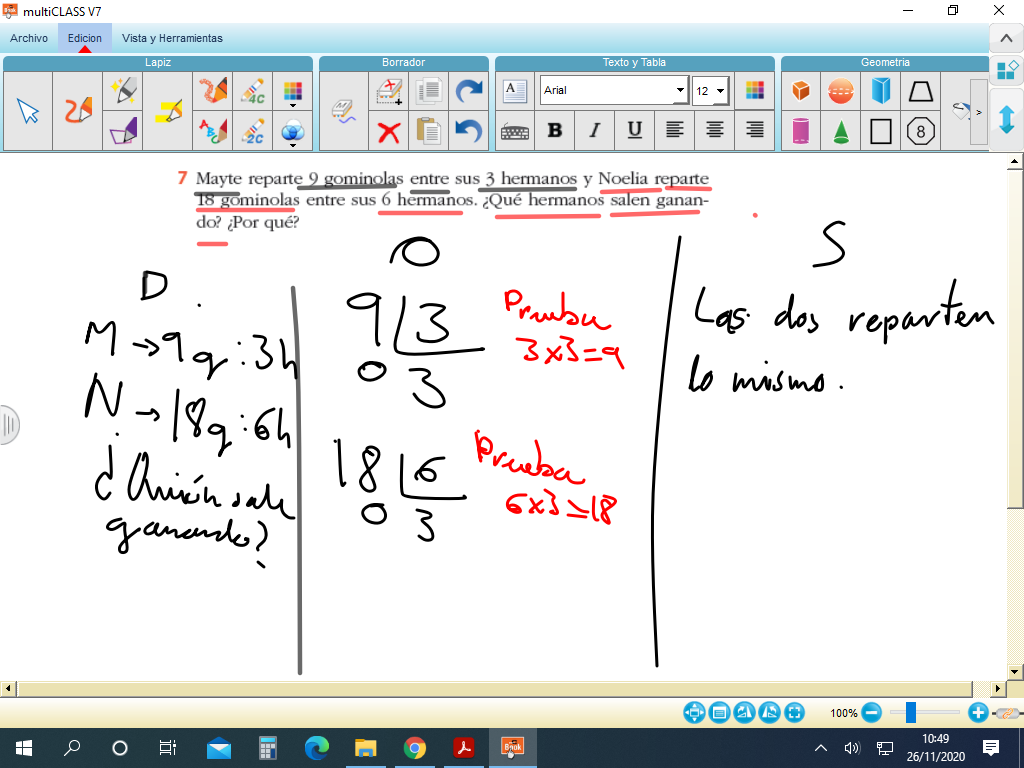 multiCLASS V7
Archivo
Edicion
Vista y Herramientas
Lapiz
Borrador
Texto y Tabla
Geometria
4C
2C
A
Arial
12
B
I
U
8
7 Mayte reparte 9 gominolas entre sus 3 hermanos y Noelia reparte
18 gominolas entre sus 6 hermanos. ¿Qué hermanos salen ganan-
do? ¿Por qué?
D
M → 9g : 3h
N → 18g : 6h
¿Quién sale
ganando?
O
9 3
0 3
Prueba
3x3=9
18 6
0 3
Prueba
6x3=18
S
Las dos reparten
lo mismo.
100%
Book
10:49
26/11/2020